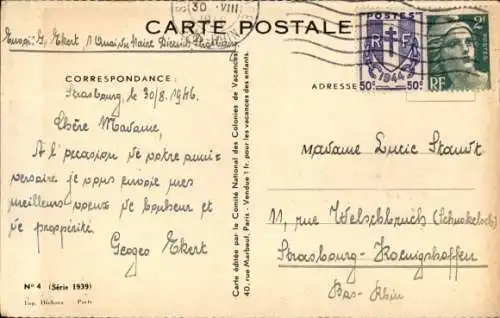 30 · VIII
CARTE POSTALE
Envoi: G. Ekert 1 Quai du Maire Dietrich, Strasbourg
CORRESPONDANCE :
Strasbourg, le 30/8. 1946.
Chère Madame,
A l'occasion de votre anni-
versaire je vous envoie mes
meilleurs voeux de bonheur et
de propérité.
Georges Ekert
N° 4 (Série 1939)
Imp. Déchaux Paris
Carte éditée par le Comité National des Colonies de Vacances
40, rue Marbeuf, Paris - Vendue 1 fr. pour les vacances des enfants.
POSTES
R F
1944
50c 50c
2F
RF
ADRESSE
Madame Lucie Staudt
11, rue Welschbruch (Schnokeloch)
Strasbourg - Koenigshoffen
Bas-Rhin